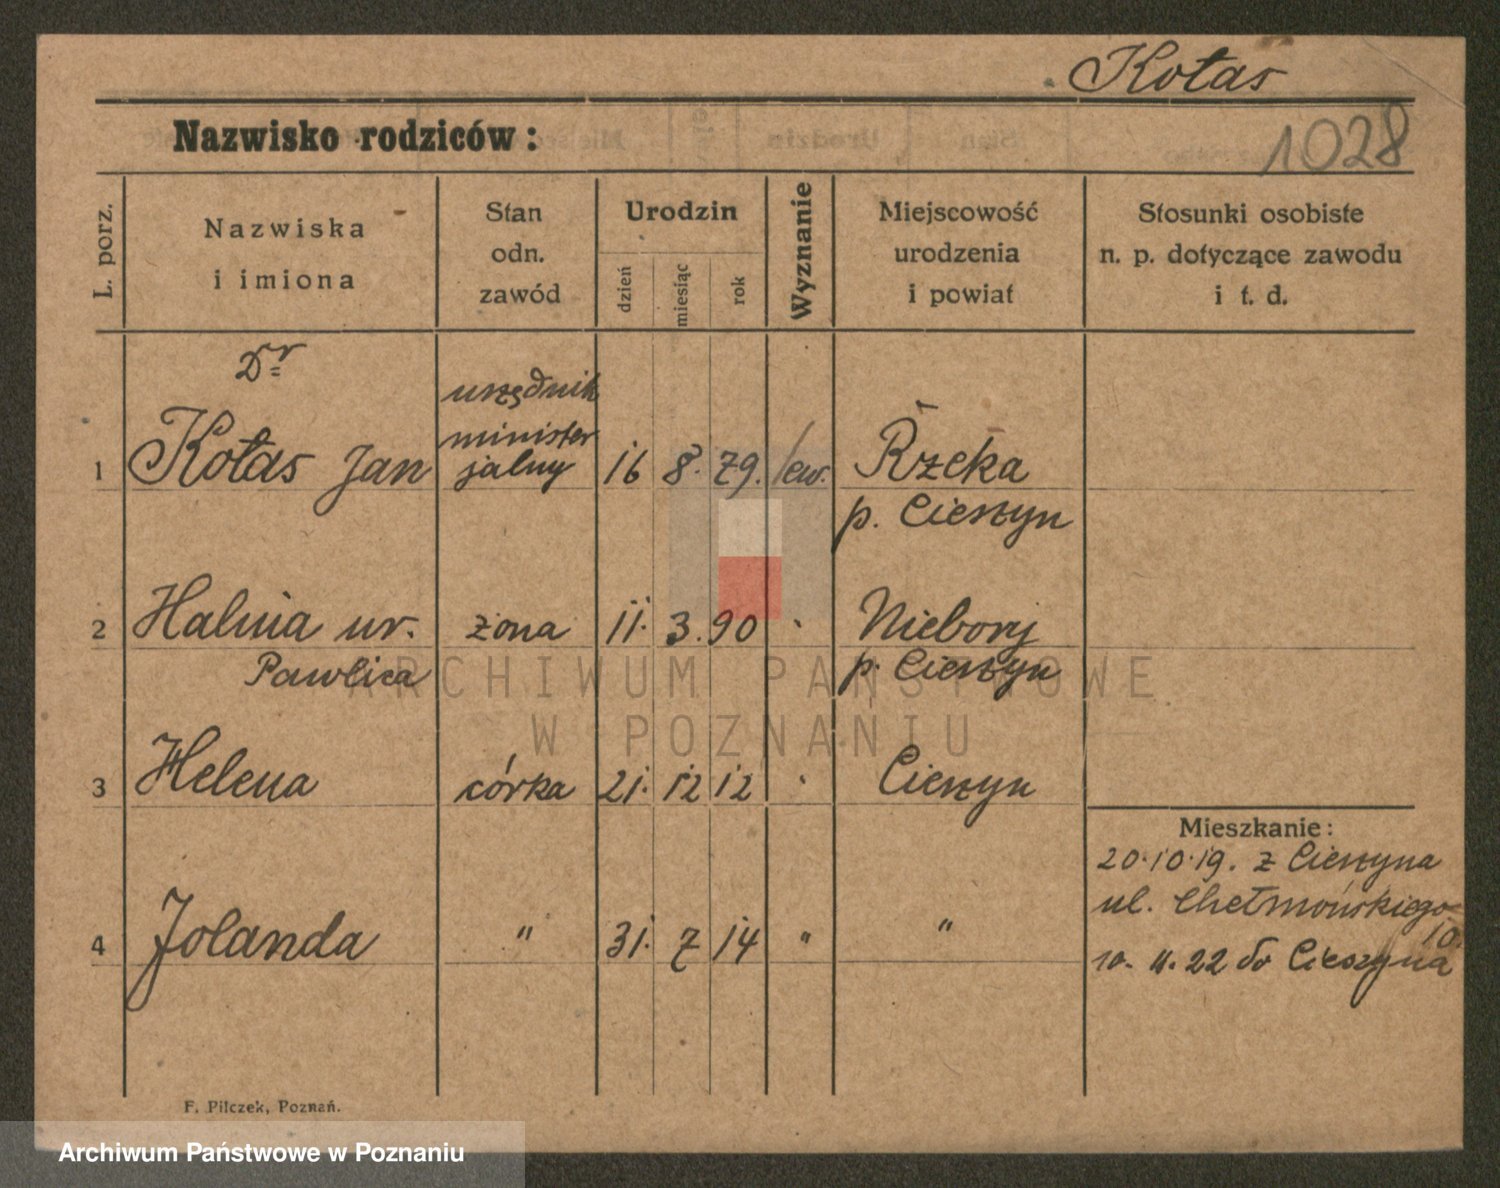 Kotas
Nazwisko rodziców:
1028
L. porz.
Nazwiska
i imiona
Stan
odn.
zawód
Urodzin
dzień
miesiąc
rok
Wyznanie
Miejscowość
urodzenia
i powiat
Stosunki osobiste
n. p. dotyczące zawodu
i t. d.
Dr
urzędnik
minister
1 Kotas Jan jalny 16 8. 79. ew. Rzeka
p. Cieszyn
2 Halina ur. żona 11. 3. 90 Niebory
Pawlica p. Cieszyn
ARCHIWUM PAŃSTWOWE
W POZNANIU
3 Helena córka 21. 12 12 Cieszyn
Mieszkanie:
20.10.19. z Cieszyna
ul. Chełmońskiego
10.
4 Jolanda " 31. 7 14 " "
10. 11. 22 do Cieszyna
F. Pilczek, Poznań.
Archiwum Państwowe w Poznaniu